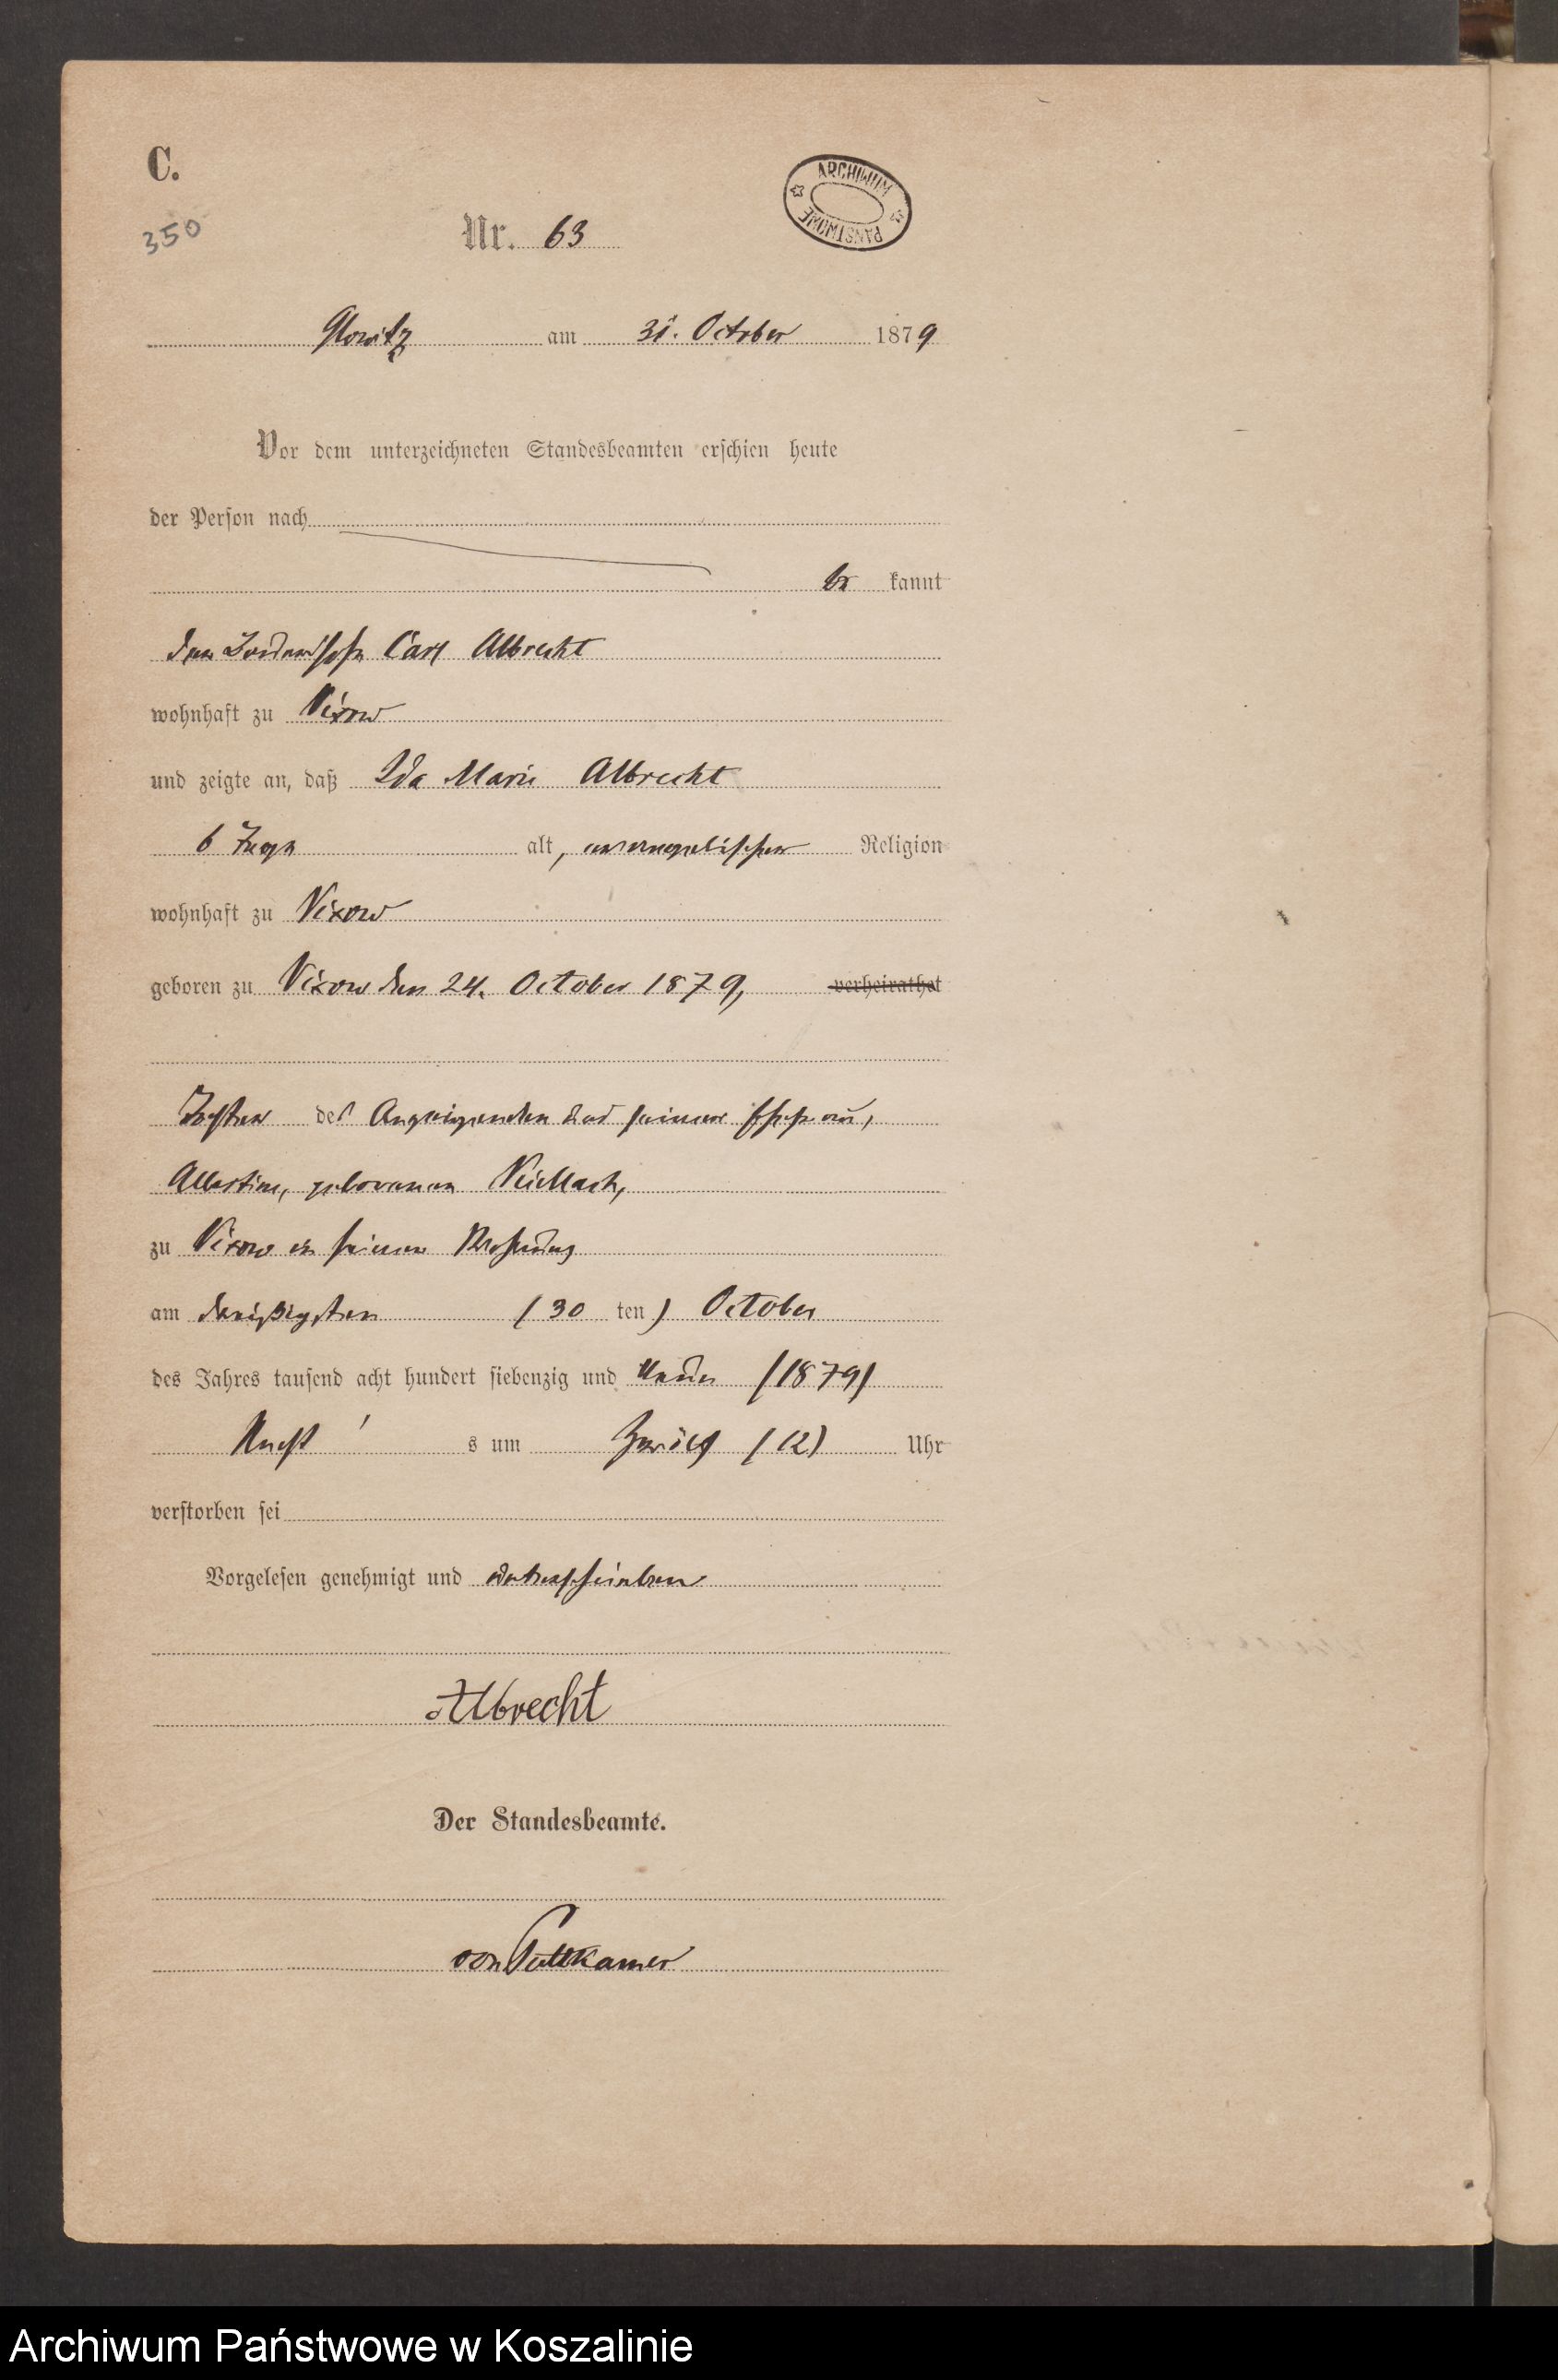 C.
350
Nr. 63
ARCHIWUM PAŃSTWOWE
Glowitz am 31. October 1879
Vor dem unterzeichneten Standesbeamten erschien heute
der Person nach
be kannt
der Carl Albrecht
wohnhaft zu Vixow
und zeigte an, daß Ida Marie Albrecht
6 Tage alt, evangelischer Religion
wohnhaft zu Vixow
geboren zu Vixow den 24. October 1879, verheirathet
Tochter des Anzeigenden und seiner Ehefrau,
Albertine, geborenen
zu Vixow in seiner Wohnung
am dreißigsten (30 ten) October
des Jahres tausend acht hundert siebenzig und neun (1879)
Nacht s um zwölf (12) Uhr
verstorben sei
Vorgelesen genehmigt und unterschrieben
Albrecht
Der Standesbeamte.
von Puttkamer
Archiwum Państwowe w Koszalinie